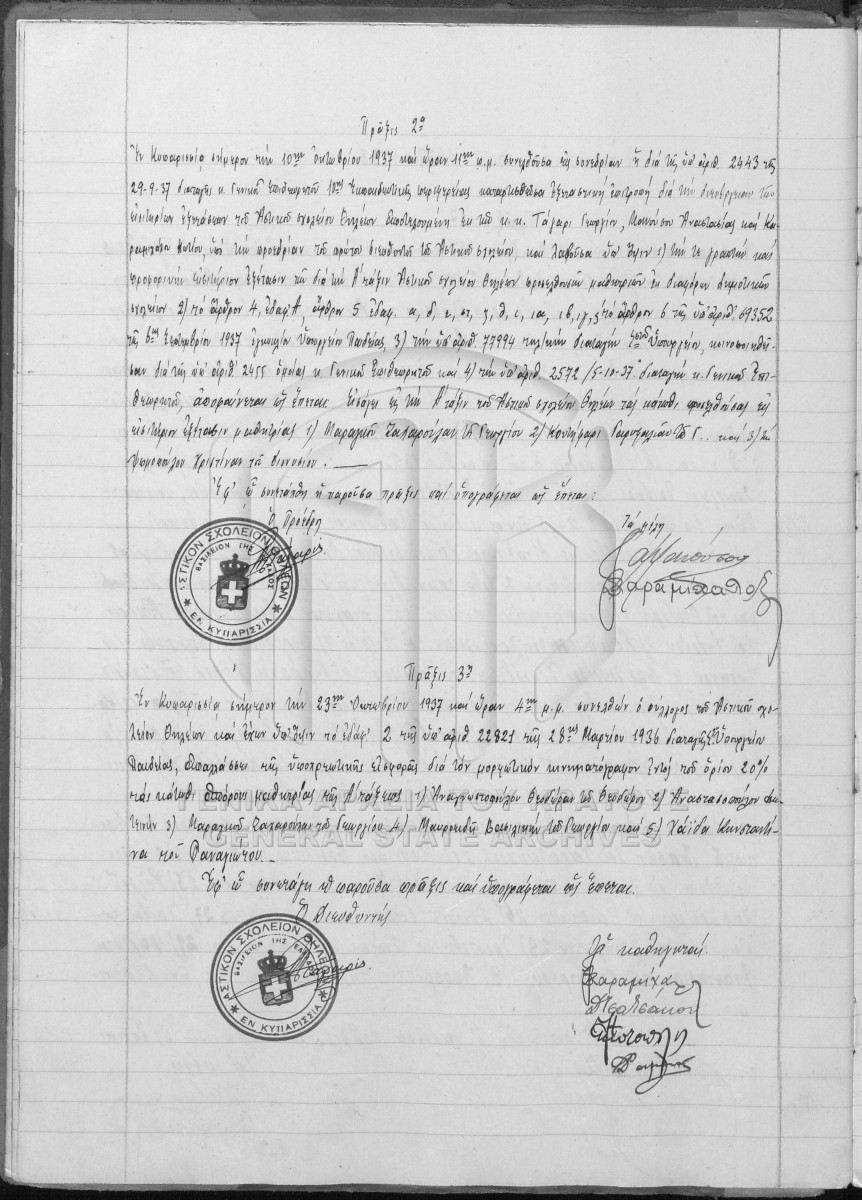 Πρᾶξις 2α
Ἐν Κυπαρισσίᾳ σήμερον τὴν 10ην Ὀκτωβρίου 1937 καὶ ὥραν 11ην π.μ. συνελθοῦσα εἰς συνεδρίαν ἡ διὰ τῆς ὑπ' ἀριθ. 2443 τῆς
29-9-37 διαταγῆς κ. Γενικοῦ Ἐπιθεωρητοῦ 10ης Ἐκπαιδευτικῆς περιφερείας καταρτισθεῖσα ἐξεταστικὴ ἐπιτροπὴ διὰ τὴν διενέργειαν τῶν
εἰσιτηρίων ἐξετάσεων τοῦ Ἀστικοῦ σχολείου Θηλέων ἀποτελουμένη ἐκ τῶν κ.κ. Τάγαρι Γεωργίου, Μανούσου Ἀναστασίας καὶ Κα-
ραμιχάλου Φωτίου, ὑπὸ τὴν προεδρίαν τοῦ πρώτου διευθυντοῦ τοῦ Ἀστικοῦ σχολείου, καὶ λαβοῦσα ὑπ' ὄψιν 1) τὴν τε γραπτὴν καὶ
προφορικὴν εἰσιτήριον ἐξέτασιν τῶν διὰ τὴν Α' τάξιν Ἀστικοῦ σχολείου Θηλέων προσελθουσῶν μαθητριῶν ἐκ διαφόρων δημοτικῶν
σχολείων 2) τὸ ἄρθρον 4, ἐδάφ. Α, ἄρθρον 5 ἐδαφ. α, δ, ε, στ, ζ, θ, ι, ια, ιβ, ιγ, τὸ ἄρθρον 6 τῆς ὑπ' ἀριθ. 69352
τῆς 6ης Σεπτεμβρίου 1937 ἐγκυκλίου Ὑπουργείου Παιδείας, 3) τὴν ὑπ' ἀριθ. 77994 τηλ/κὴν διαταγὴν τοῦ Ὑπουργείου, κοινοποιηθεῖ-
σαν διὰ τῆς ὑπ' ἀριθ. 2455 ὁμοίας κ. Γενικοῦ Ἐπιθεωρητοῦ καὶ 4) τὴν ὑπ' ἀριθ. 2572/5-10-37 διαταγὴν κ. Γενικοῦ Ἐπι-
θεωρητοῦ, ἀποφαίνεται ὡς ἕπεται: Εἰσάγει εἰς τὴν Α' τάξιν τοῦ Ἀστικοῦ σχολείου Θηλέων τὰς κάτωθι προσελθούσας εἰς
εἰσιτήριον ἐξέτασιν μαθητρίας 1) Μαραγκοῦ Ζαχαρούλαν τοῦ Γεωργίου 2) Κουτήφαρι Γαρυφαλιὰν τοῦ Γ.. καὶ 3) τὴν
Ψωμοπούλου Χριστίναν τοῦ Διονυσίου.
Ἐφ' ᾧ συνετάχθη ἡ παροῦσα πρᾶξις καὶ ὑπογράφεται ὡς ἕπεται:
Ὁ Πρόεδρος
Τὰ μέλη
ΑΣΤΙΚΟΝ ΣΧΟΛΕΙΟΝ ΘΗΛΕΩΝ
ΒΑΣΙΛΕΙΟΝ ΤΗΣ ΕΛΛΑΔΟΣ
ΕΝ ΚΥΠΑΡΙΣΣΙΑ
Πρᾶξις 3η
Ἐν Κυπαρισσίᾳ σήμερον τὴν 23ην Ὀκτωβρίου 1937 καὶ ὥραν 4ην μ.μ. συνελθὼν ὁ σύλλογος τοῦ Ἀστικοῦ σχο-
λείου Θηλέων καὶ ἔχων ὑπ' ὄψιν τὸ ἐδάφ. 2 τῆς ὑπ' ἀριθ. 22821 τῆς 28ης Μαρτίου 1936 διαταγῆς τοῦ Ὑπουργείου
Παιδείας, ἀπαλλάσσει τῆς ὑποχρεωτικῆς εἰσφορᾶς διὰ τὸν μορφωτικὸν κινηματογράφον ἐντὸς τοῦ ὁρίου 20%
τὰς κάτωθι ἀπόρους μαθητρίας τῆς Α' τάξεως 1) Ἀναγνωστοπούλου Θεοδώραν τοῦ Θεοδώρου 2) Ἀναστασοπούλου Φω-
τεινὴν 3) Μαραγκοῦ Ζαχαρούλαν τοῦ Γεωργίου 4) Μαυροειδῆ Βασιλικὴν τοῦ Γεωργίου καὶ 5) Χάϊδα Κωνσταντί-
να τοῦ Παναγιώτου.
Ἐφ' ᾧ συνετάγη ἡ παροῦσα πρᾶξις καὶ ὑπογράφεται ὡς ἕπεται.
Ὁ Διευθυντὴς
Οἱ καθηγηταί.
ΑΣΤΙΚΟΝ ΣΧΟΛΕΙΟΝ ΘΗΛΕΩΝ
ΒΑΣΙΛΕΙΟΝ ΤΗΣ ΕΛΛΑΔΟΣ
ΕΝ ΚΥΠΑΡΙΣΣΙΑ
ΓΕΝΙΚΑ ΑΡΧΕΙΑ ΤΟΥ ΚΡΑΤΟΥΣ
GENERAL STATE ARCHIVES